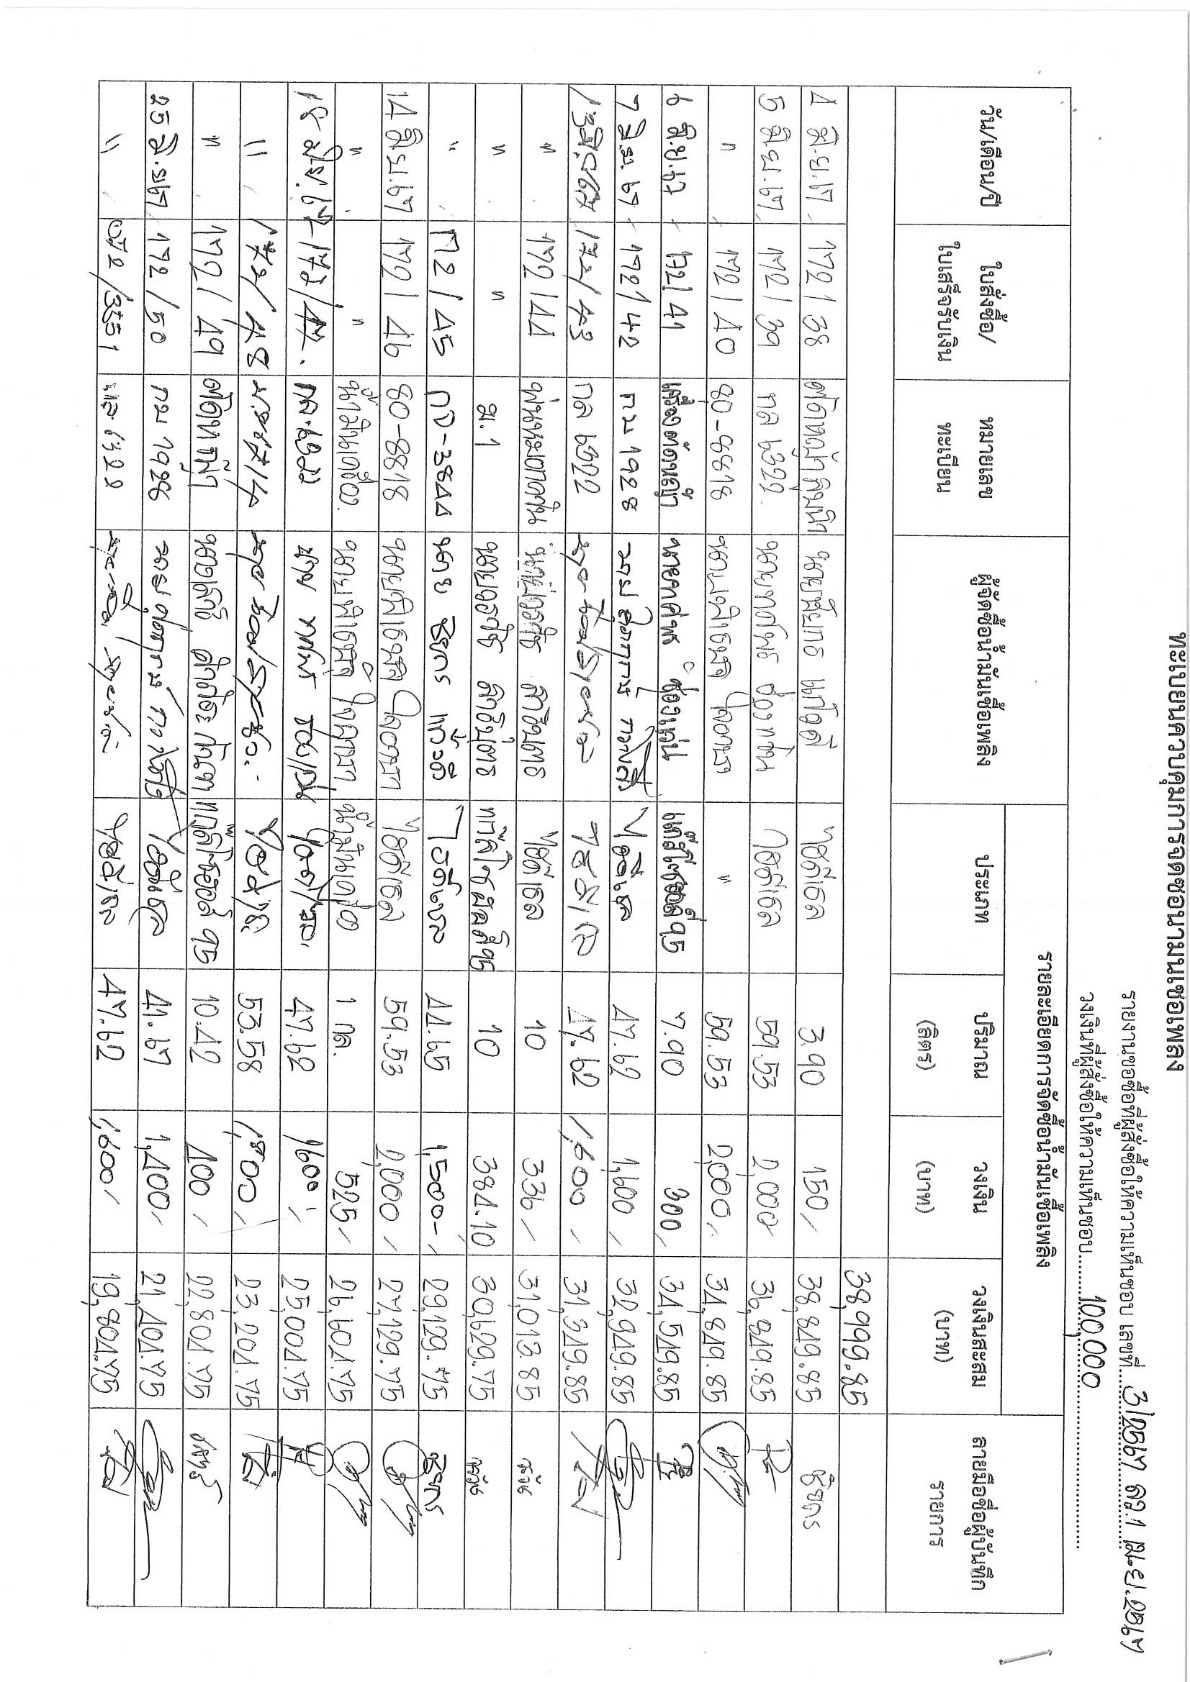 ทะเบียนควบคุมการจัดซื้อน้ำมันเชื้อเพลิง
รายงานขอซื้อที่ผู้สั่งซื้อให้ความเห็นชอบ เลขที่ 3/2567 ลว.1 เม.ย. 2567
วงเงินที่ผู้สั่งซื้อให้ความเห็นชอบ 100,000
วัน/เดือน/ปี ใบสั่งซื้อ/ใบเสร็จรับเงิน หมายเลขทะเบียน ผู้จัดซื้อน้ำมันเชื้อเพลิง รายละเอียดการจัดซื้อน้ำมันเชื้อเพลิง ลายมือชื่อผู้บันทึกรายการ
ประเภท ปริมาณ (ลิตร) วงเงิน (บาท) วงเงินสะสม (บาท)
38,999.85
4 มิ.ย.67 172/38 ตัดหญ้า นายชัยกร แก้วดี ไฮดีเซล 3.90 150/ 38,849.85 ชัยกร
5 มิ.ย.67 172/39 กล 6322 นายทศพร ช่องแว่น ไฮดีเซล 59.53 2,000 36,849.85
" 172/40 80-8818 " 59.53 2,000/ 34,849.85
6 มิ.ย.67 172/41 เครื่องตัดหญ้า นายทศพร ช่องแว่น แก๊สโซฮอล์ 95 7.90 300/ 34,549.85
7 มิ.ย. 67 172/42 กบ 1928 นาย ไฮดีเซล 47.62 1,600/ 32,949.85
13 มิ.ย.67 172/43 กล 6322 นาย ไฮดีเซล 47.62 1,600/ 31,349.85
" 172/44 พ่นหมอกควัน นายวรวัช สาริบุตร ไฮดีเซล 10 336/ 31,013.85
" " ม.1 นายวรวัช สาริบุตร แก๊สโซฮอล์ 95 10 384.10 30,629.75
" 172/45 กจ-3844 นาย ชัยกร แก้วดี ไฮดีเซล 44.65 1,500-/ 29,129.75 ชัยกร
14 มิ.ย.67 172/46 80-8818 ไฮดีเซล 59.53 2,000/ 27,129.75
" " น้ำมันเครื่อง น้ำมันเครื่อง 1 กล. 525/ 26,604.75
18 มิ.ย.67 172/47 กล.6322 นาย ทศพร ช่องแว่น ไฮดีเซล 47.62 1600/ 25,004.75
" 172/48 นาย ไฮดีเซล 53.58 1,800/ 23,204.75
" 172/49 ตัดหญ้า แก๊สโซฮอล์ 95 10.42 400/ 22,804.75
25 มิ.ย.67 172/50 กบ 1928 นาย ไฮดีเซล 41.67 1,400/ 21,404.75
" กล.6322 ไฮดีเซล 47.62 1,600/ 19,804.75